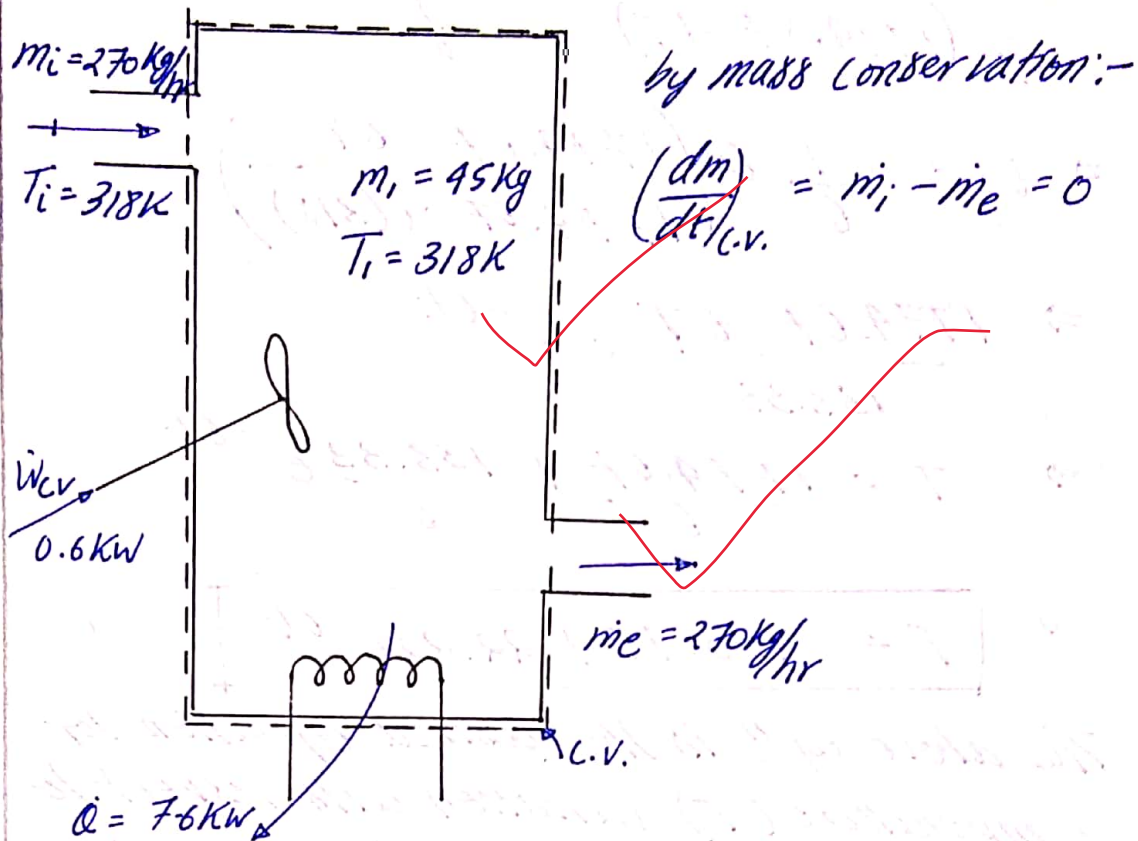 ṁi = 270 Kg/hr
Ti = 318K
m1 = 45 Kg
T1 = 318K
by mass conservation:-
(dm/dt)C.V. = ṁi - ṁe = 0
ẆCV
0.6 KW
ṁe = 270 Kg/hr
C.V.
Q̇ = 7.6 KW